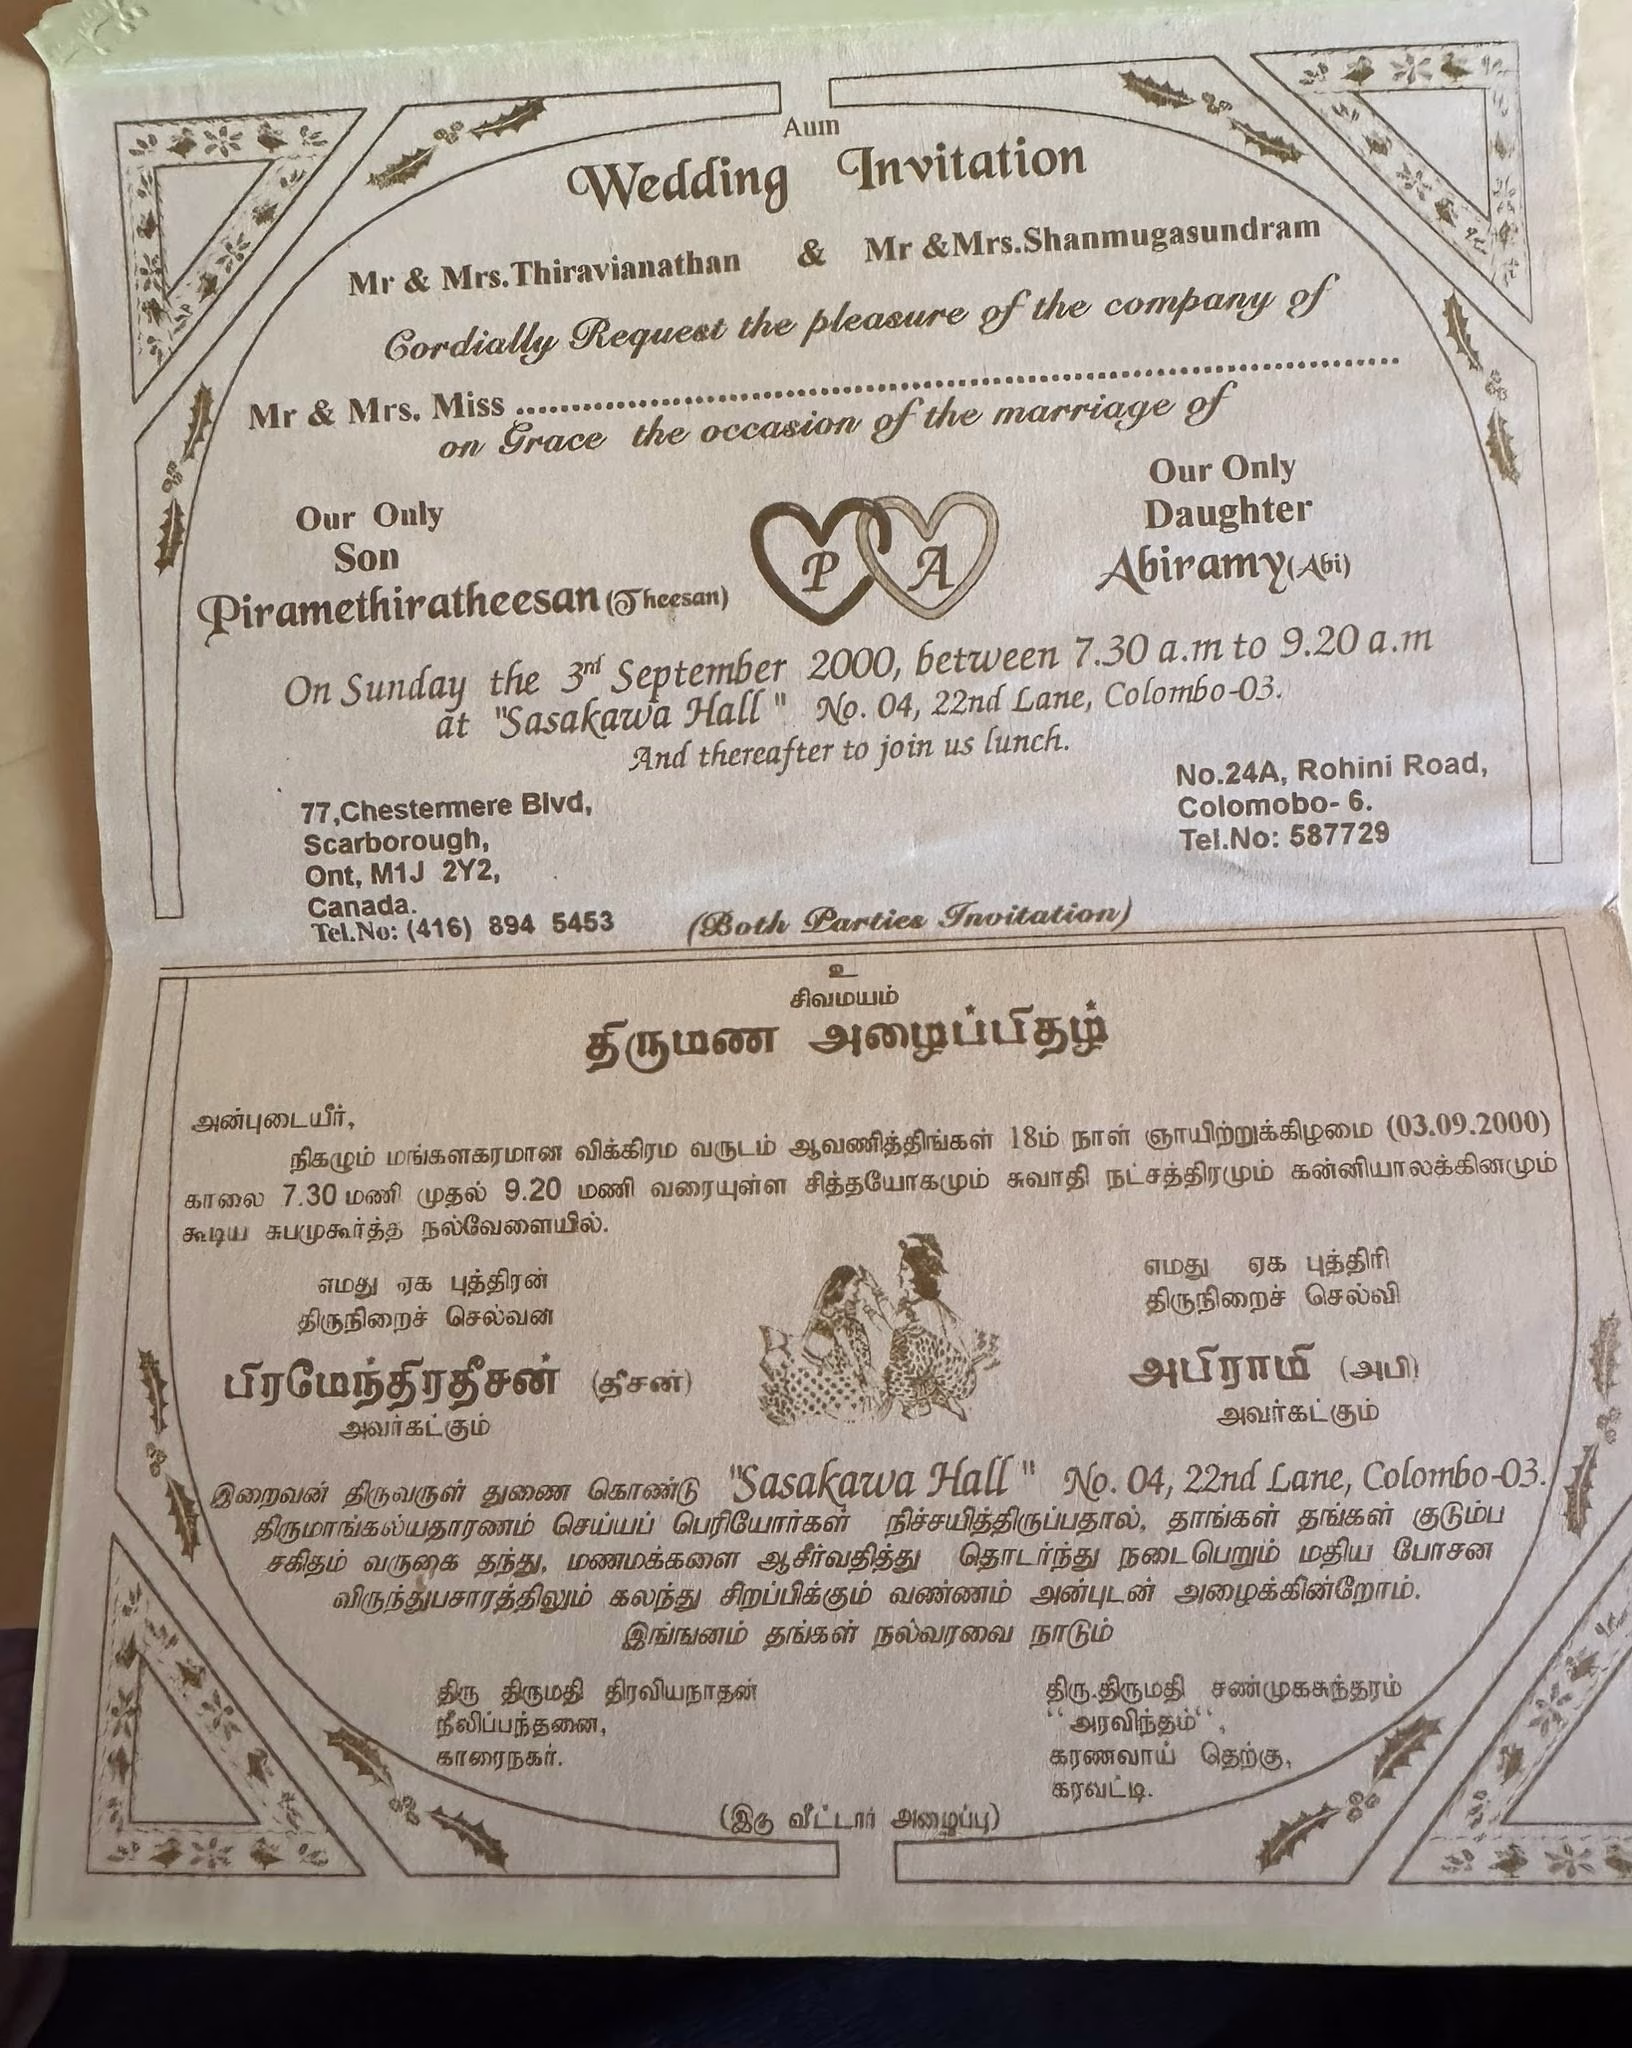 Aum
Wedding Invitation
Mr & Mrs.Thiravianathan & Mr &Mrs.Shanmugasundram
Cordially Request the pleasure of the company of
Mr & Mrs. Miss ........................................................................................
on Grace the occasion of the marriage of
Our Only
Son
Piramethiratheesan (Theesan)
P A
Our Only
Daughter
Abiramy (Abi)
On Sunday the 3rd September 2000, between 7.30 a.m to 9.20 a.m
at "Sasakawa Hall" No. 04, 22nd Lane, Colombo-03.
And thereafter to join us lunch.
77,Chestermere Blvd,
Scarborough,
Ont, M1J 2Y2,
Canada.
Tel.No: (416) 894 5453
No.24A, Rohini Road,
Colomobo- 6.
Tel.No: 587729
(Both Parties Invitation)
உ
சிவமயம்
திருமண அழைப்பிதழ்
அன்புடையீர்,
நிகழும் மங்களகரமான விக்கிரம வருடம் ஆவணித்திங்கள் 18ம் நாள் ஞாயிற்றுக்கிழமை (03.09.2000)
காலை 7.30 மணி முதல் 9.20 மணி வரையுள்ள சித்தயோகமும் சுவாதி நட்சத்திரமும் கன்னியாலக்கினமும்
கூடிய சுபமுகூர்த்த நல்வேளையில்.
எமது ஏக புத்திரன்
திருநிறைச் செல்வன்
பிரமேந்திரதீசன் (தீசன்)
அவர்கட்கும்
எமது ஏக புத்திரி
திருநிறைச் செல்வி
அபிராமி (அபி)
அவர்கட்கும்
இறைவன் திருவருள் துணை கொண்டு "Sasakawa Hall" No. 04, 22nd Lane, Colombo-03.
திருமாங்கல்யதாரணம் செய்யப் பெரியோர்கள் நிச்சயித்திருப்பதால், தாங்கள் தங்கள் குடும்ப
சகிதம் வருகை தந்து, மணமக்களை ஆசீர்வதித்து தொடர்ந்து நடைபெறும் மதிய போசன
விருந்துபசாரத்திலும் கலந்து சிறப்பிக்கும் வண்ணம் அன்புடன் அழைக்கின்றோம்.
இங்ஙனம் தங்கள் நல்வரவை நாடும்
திரு திருமதி திரவியநாதன்
நீலிப்பந்தனை,
காரைநகர்.
திரு.திருமதி சண்முகசுந்தரம்
"அரவிந்தம்",
கரணவாய் தெற்கு,
கரவட்டி.
(இரு வீட்டார் அழைப்பு)